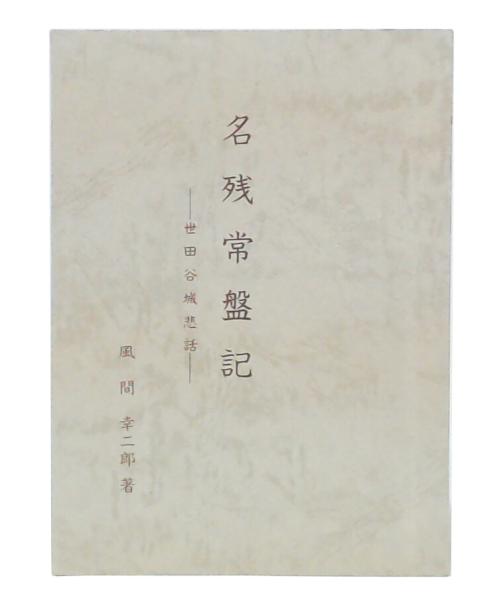 名残常盤記
―世田谷城悲話―
風間幸二郎著